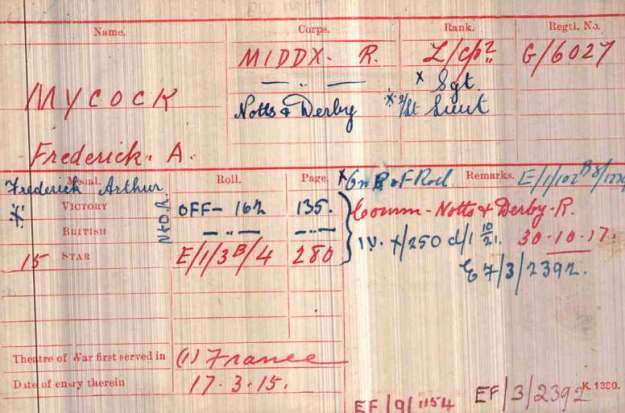 Name. Corps. Rank. Regtl. No.
MIDDX. R. L/Cpl. G/6027
—„— × Sgt
MYCOCK Notts & Derby * 2/Lt Lieut
Frederick. A.
Medal. Roll. Page. Remarks.
Frederick Arthur × of Roll E/1/102
VICTORY OFF- 162 135. Comm-Notts & Derby-R.
BRITISH —„— —„— 30-10-17.
15 STAR E/1/3B/4 280 IV. ×/250 d/1 10/21.
E 7/3/2392.
Theatre of War first served in (1) France
Date of entry therein 17.3.15.
EF/9/1154 EF/3/2392 K. 1380.